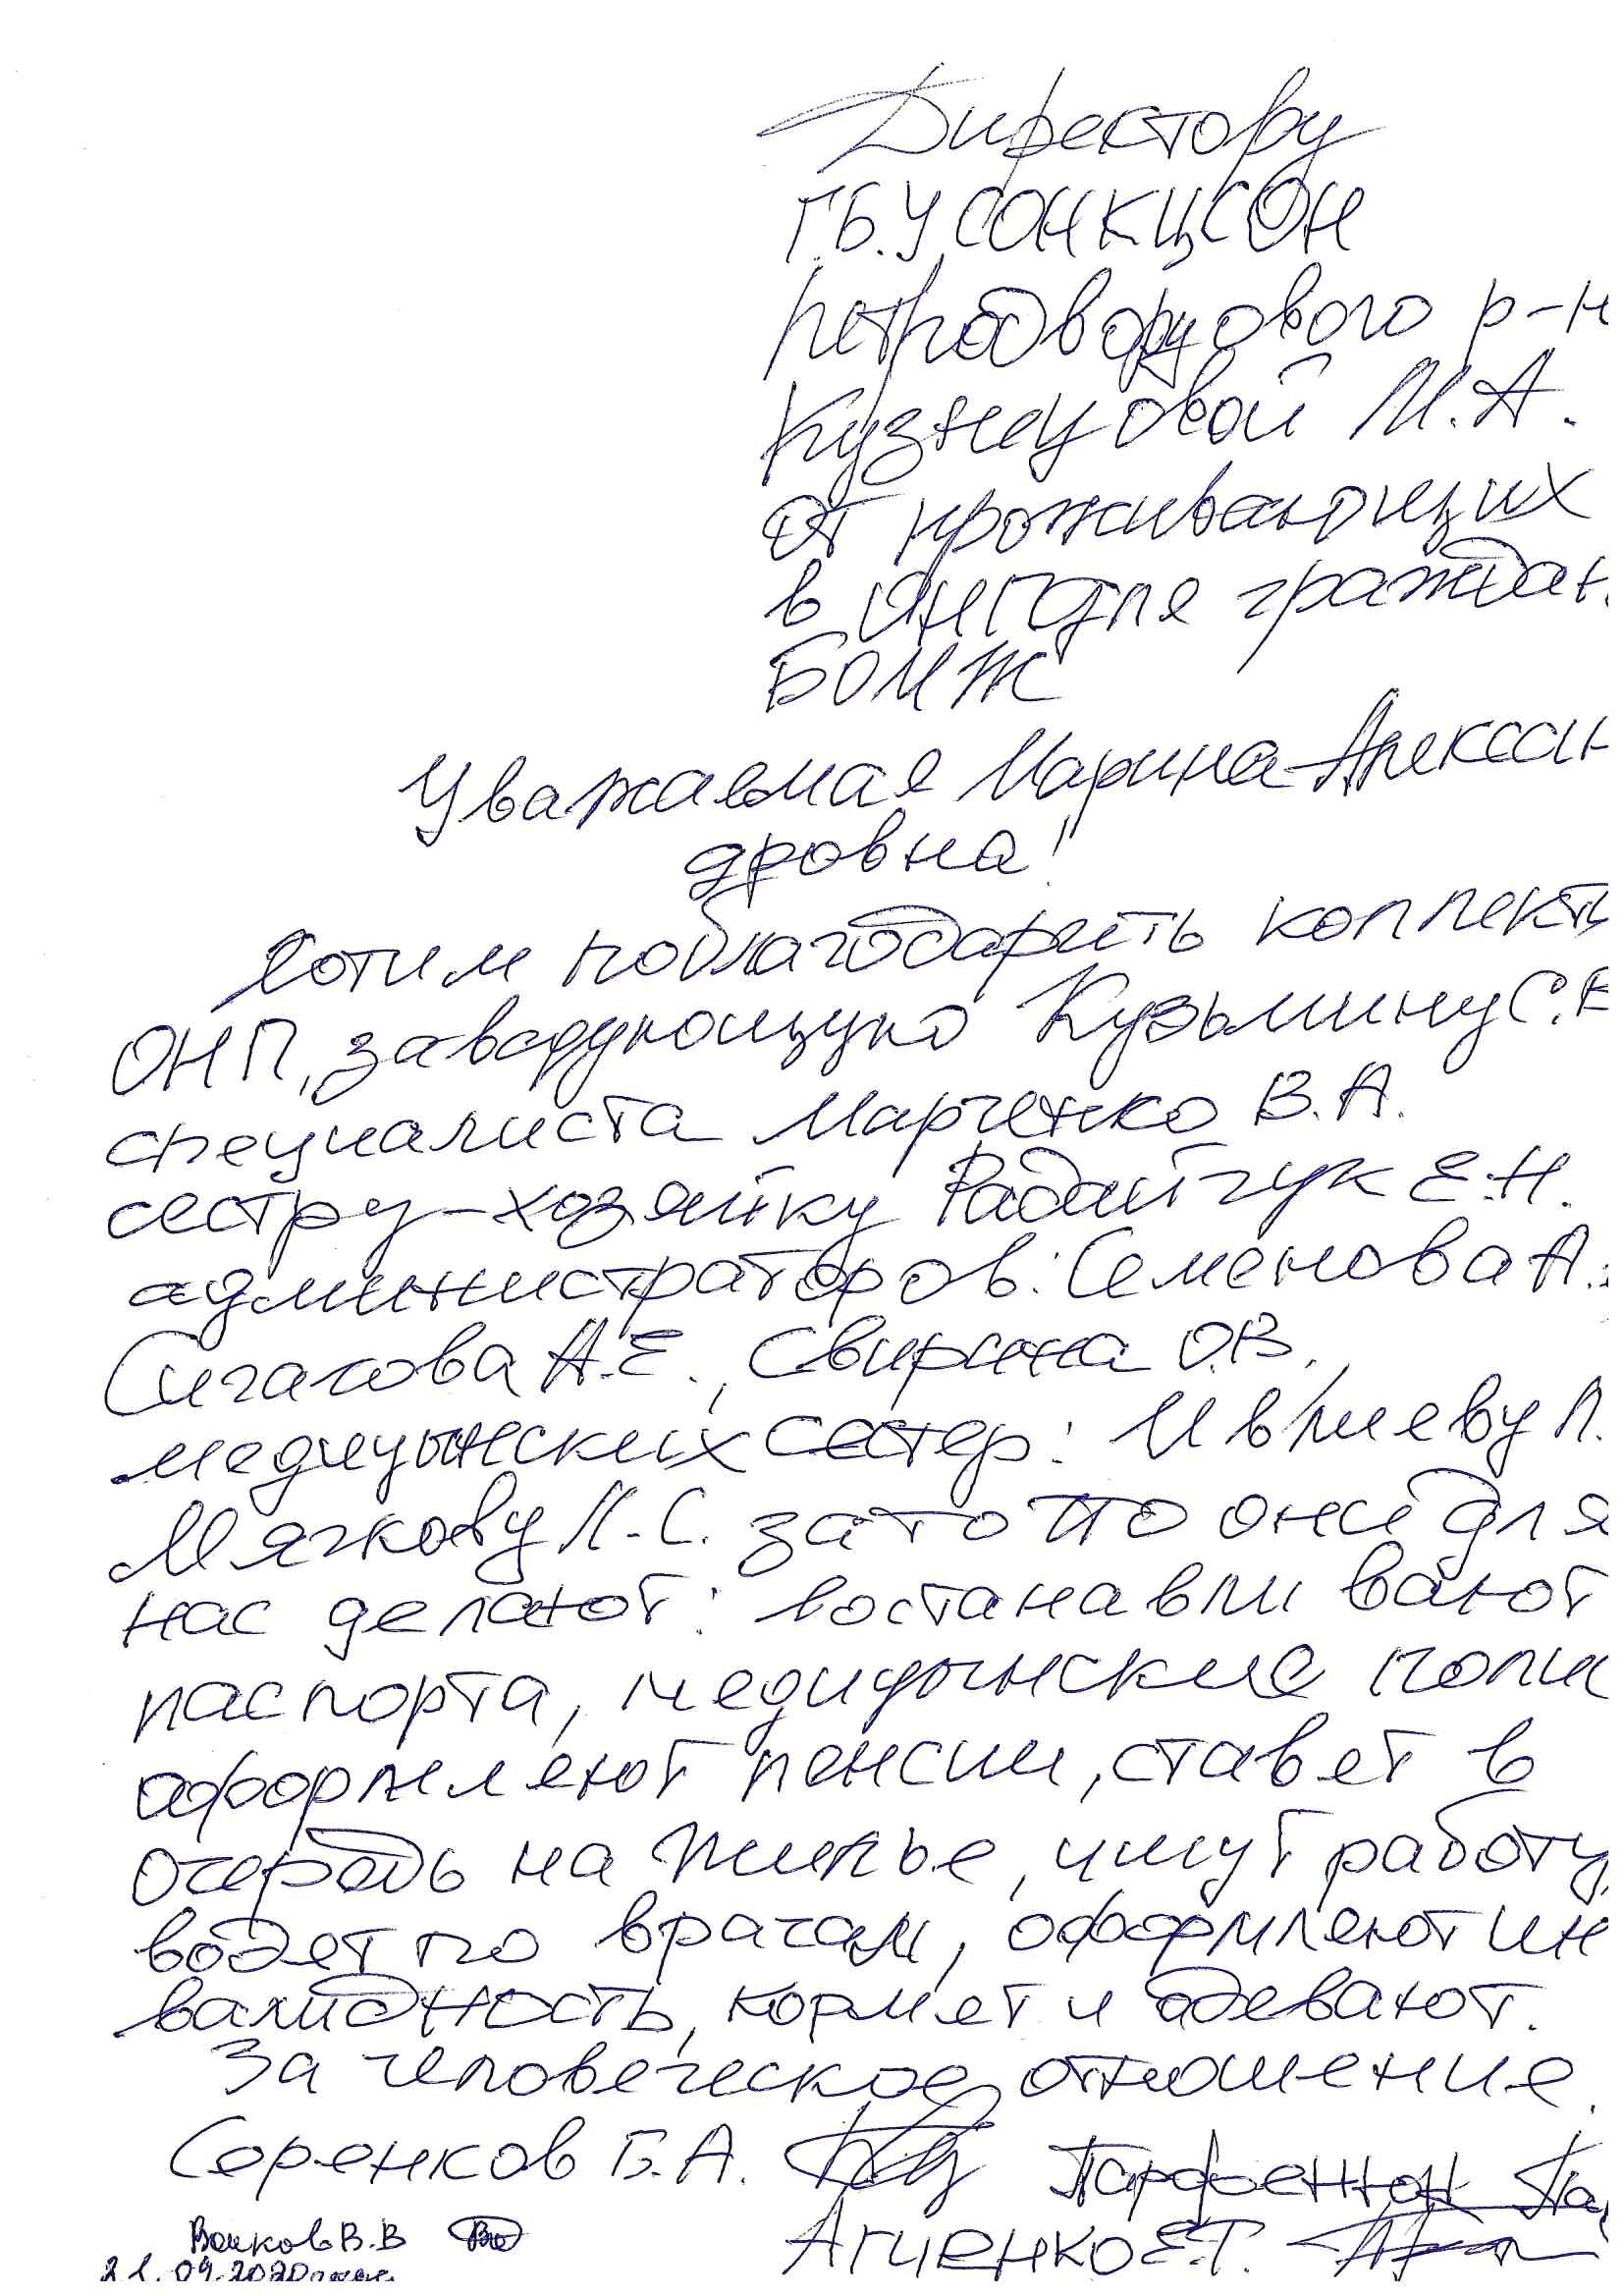 Директору
Г.Б.У СОН КЦСОН
Петродворцового р-н
Кузнецовой М.А.
от проживающих
в ангаре граждан
БОМЖ
Уважаемая Марина Алексан
дровна!
Хотим поблагодарить коллекти
ОНП, заведующую Кузьмину С.В
специалиста Марченко В.А.
сестру-хозяйку Радайчук Е.Н.
администраторов: Семенова А.
Сигачова А.Е., Свирина О.В.,
медицынских сестер: Ивлиеву Л.
Мягкову Л.С. за то что они для
нас делают: востанавливают
паспорта, медицынские поли
оформляют пенсии, ставет в
очередь на жилье, ищут работу,
водят по врачам, оформляют ин
валидность, кормят и одевают.
За человеческое отношение.
Серенков Б.А.
Парфенюк
Волков В.В Агиенко Е.Г.
21.04.2020